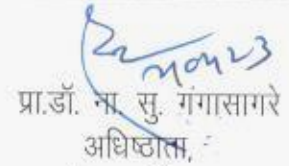 प्रा.डॉ. ना. सु. गंगासागरे
अधिष्ठाता,